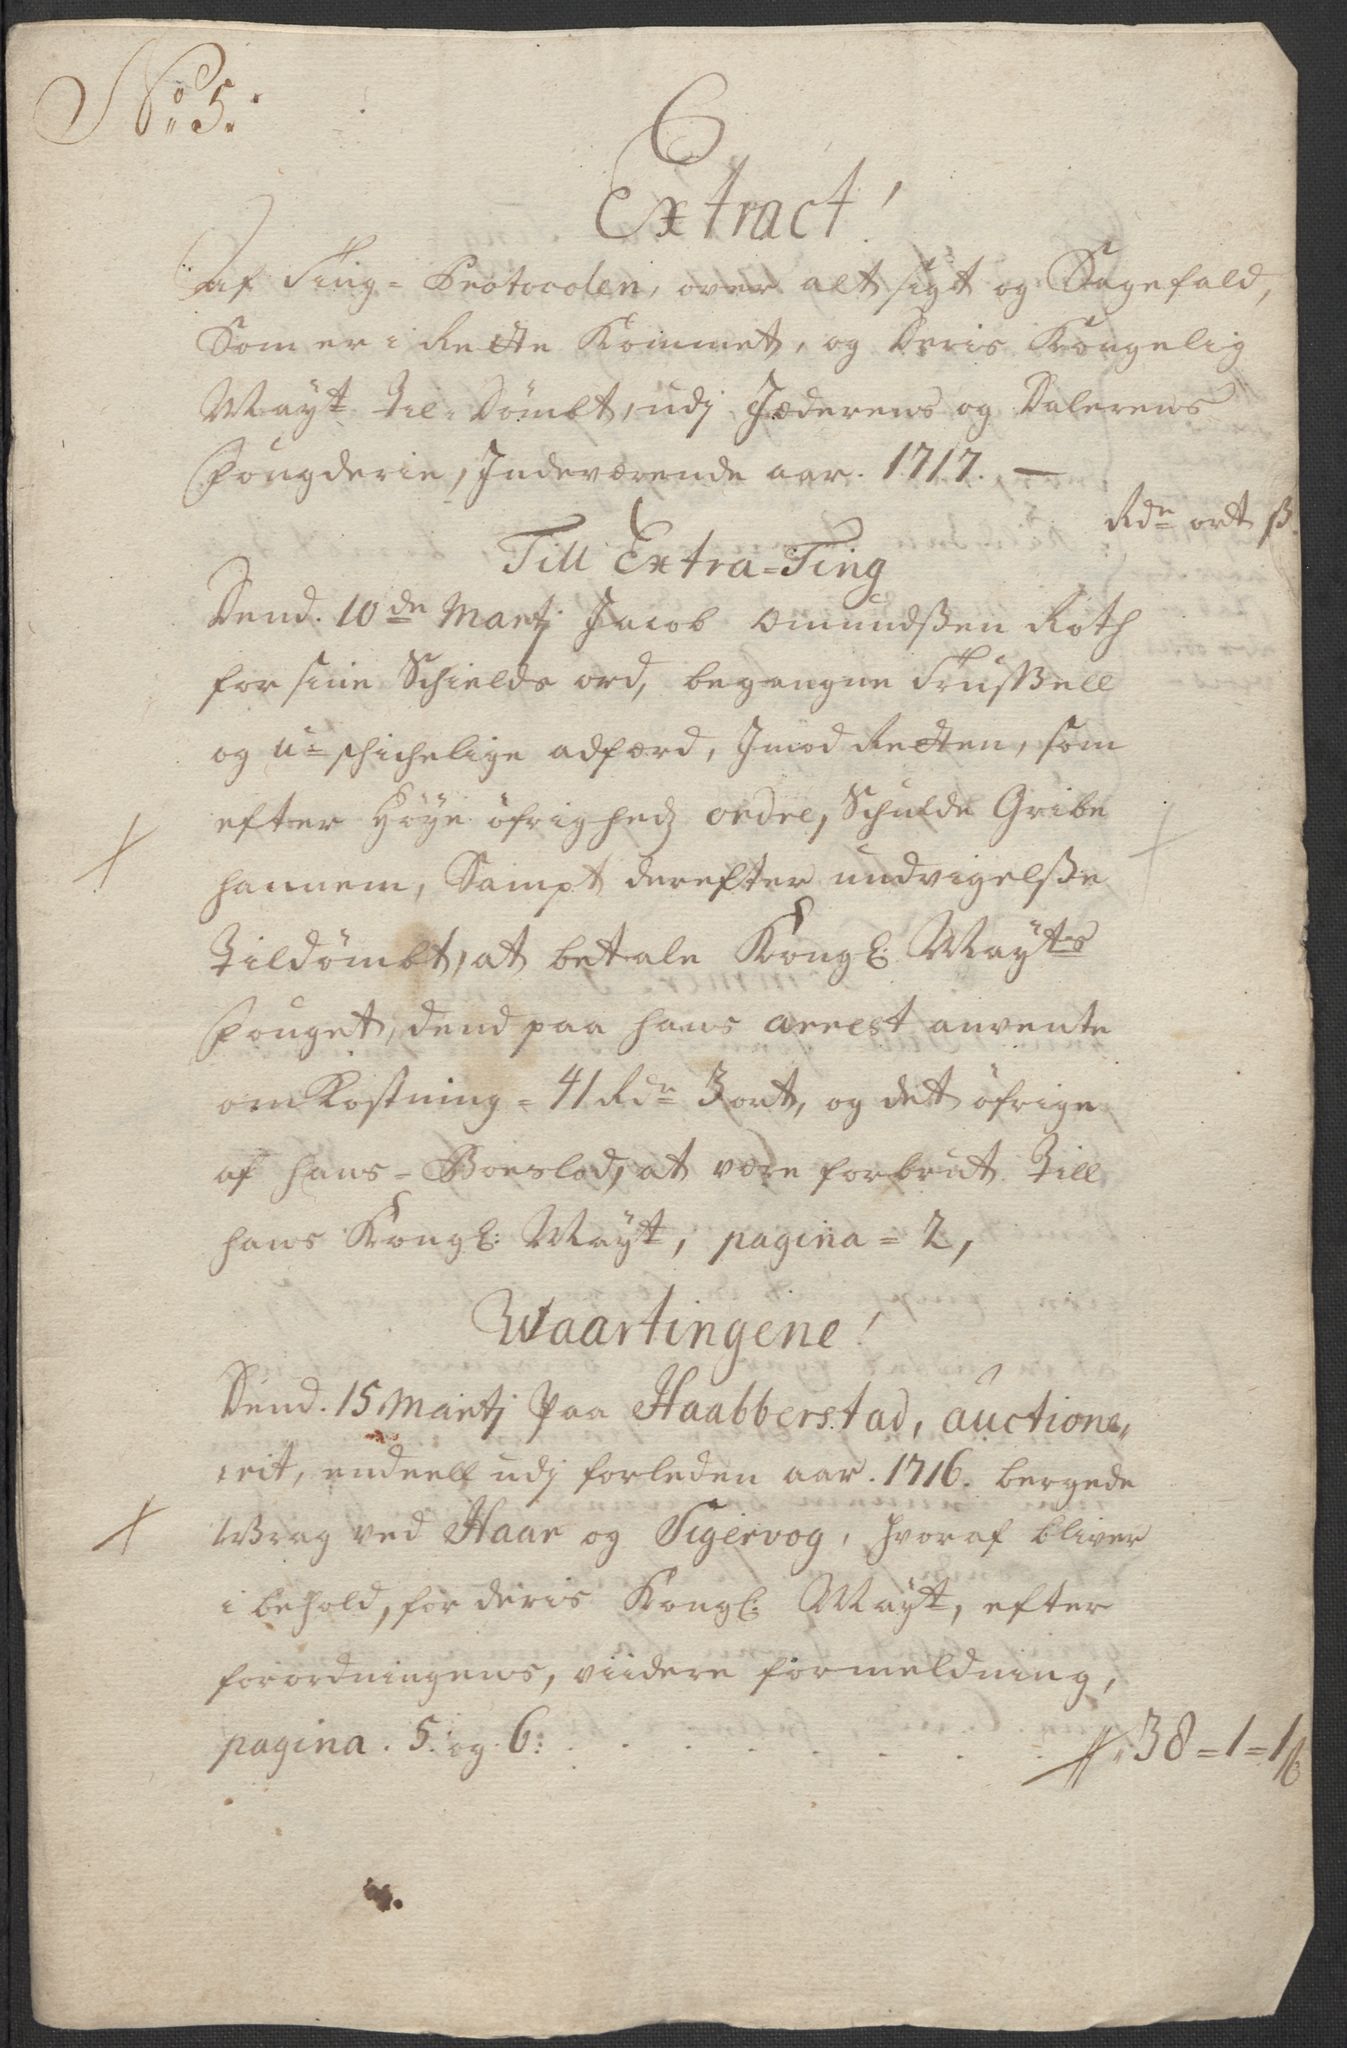 No: 5.
Extract!
Af Ting=Protocolen, over alt sigt og Sagefald,
Som er i Rette Kommet, og Deris Kongelig
Mayt Til-Dömbt, udj Jæderens og Dalerens
Fougderie, Indeværende aar. 1717. —
Rdr ort ß.
Till Extra=Ting
Dend. 10de Martj Jacob Omundßen Röth
for sine Schields ord, begangne Trußell
og u=schichelige adfærd, Imod Retten, som
efter Höye öfrighedz ordre, Schulde Gribe
hannem, Sampt derefter undvigelße
Tildömbt, at betale Kongl: Mayts
Fouget, dend paa hans arrest anvente
omKostning = 41 Rdr 3 ort, og det öfrige
af hans=Boeslod, at være forbrut Till
hans Kongl: Mayt, pagina = 2,
Waartingene!
Dend. 15 Martj Paa Haabberstad, auctione,,
rit, endeell udj forleden aar. 1716. bergede
Wrag ved Haar og Sigervog, hvoraf bliver
i behold, for deris Kongl: Mayt, efter
forordningens, viidere formeldning,
pagina. 5. og. 6: . . . . . . . 38=1=1ß